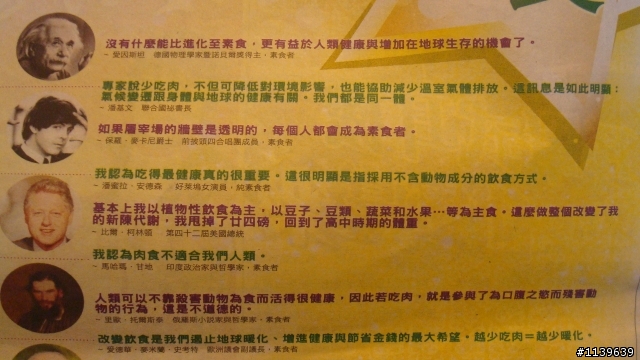 沒有什麼能比進化至素食，更有益於人類健康與增加在地球生存的機會了。
~ 愛因斯坦 德國物理學家暨諾貝爾獎得主，素食者
專家說少吃肉，不但可降低對環境影響，也能協助減少溫室氣體排放。這訊息是如此明顯：
氣候變遷跟身體與地球的健康有關。我們都是同一體。
~ 潘基文 聯合國祕書長
如果屠宰場的牆壁是透明的，每個人都會成為素食者。
~ 保羅．麥卡尼爵士 前披頭四合唱團成員，素食者
我認為吃得最健康真的很重要。這很明顯是指採用不含動物成分的飲食方式。
~ 潘蜜拉．安德森 好萊塢女演員，純素食者
基本上我以植物性飲食為主，以豆子、豆類、蔬菜和水果…等為主食。這麼做整個改變了我
的新陳代謝，我甩掉了廿四磅，回到了高中時期的體重。
~ 比爾．柯林頓 第四十二屆美國總統
我認為肉食不適合我們人類。
~ 馬哈瑪．甘地 印度政治家與哲學家，素食者
人類可以不靠殺害動物為食而活得很健康，因此若吃肉，就是參與了為口腹之慾而殘害動
物的行為，這是不道德的。
~ 里歐．托爾斯泰 俄羅斯小說家與哲學家、素食者
改變飲食是我們遏止地球暖化、增進健康與節省金錢的最大希望。越少吃肉＝越少暖化。
~ 愛德華．麥米蘭．史考特 歐洲議會副議長，素食者
#1139639